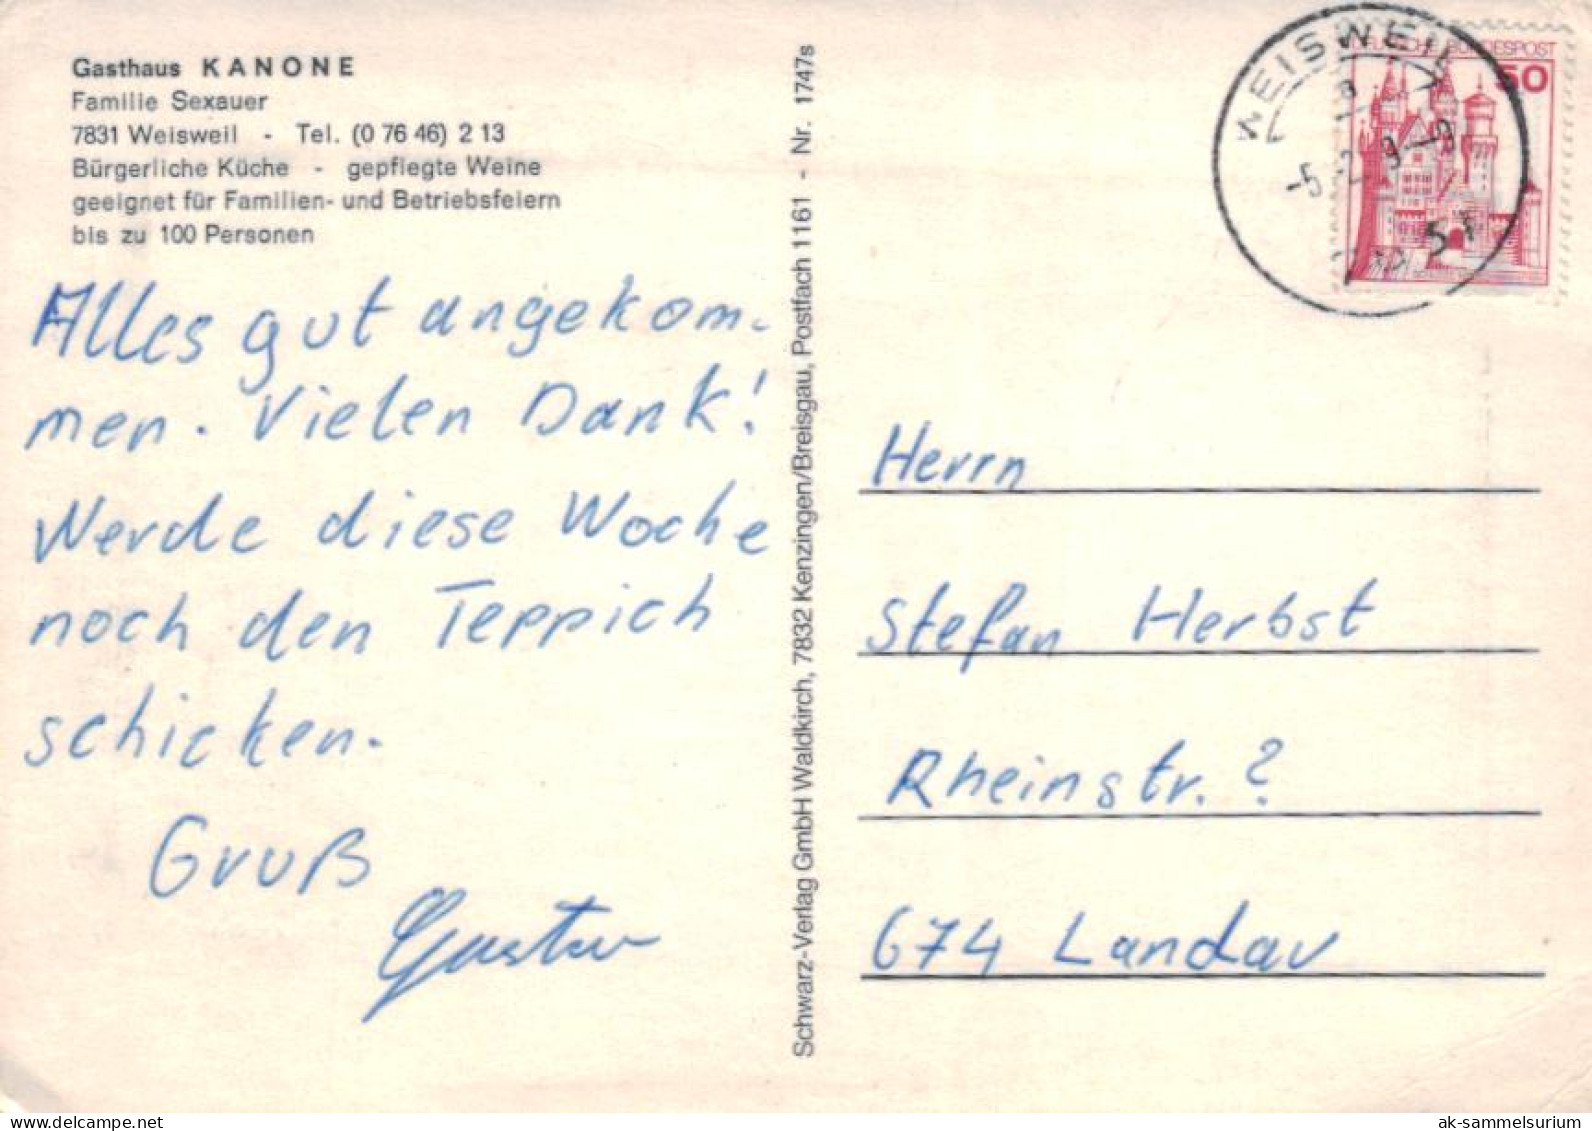 Gasthaus KANONE
Familie Sexauer
7831 Weisweil - Tel. (0 76 46) 2 13
Bürgerliche Küche - gepflegte Weine
geeignet für Familien- und Betriebsfeiern
bis zu 100 Personen
Alles gut angekom-
men. Vielen Dank!
Werde diese Woche
noch den Teppich
schicken.
Gruß
Gustav
Schwarz-Verlag GmbH Waldkirch, 7832 Kenzingen/Breisgau, Postfach 1161 - Nr. 1747s
WEISWEIL
BUNDESPOST
50
Herrn
Stefan Herbst
Rheinstr. ?
674 Landau
ak-sammelsurium